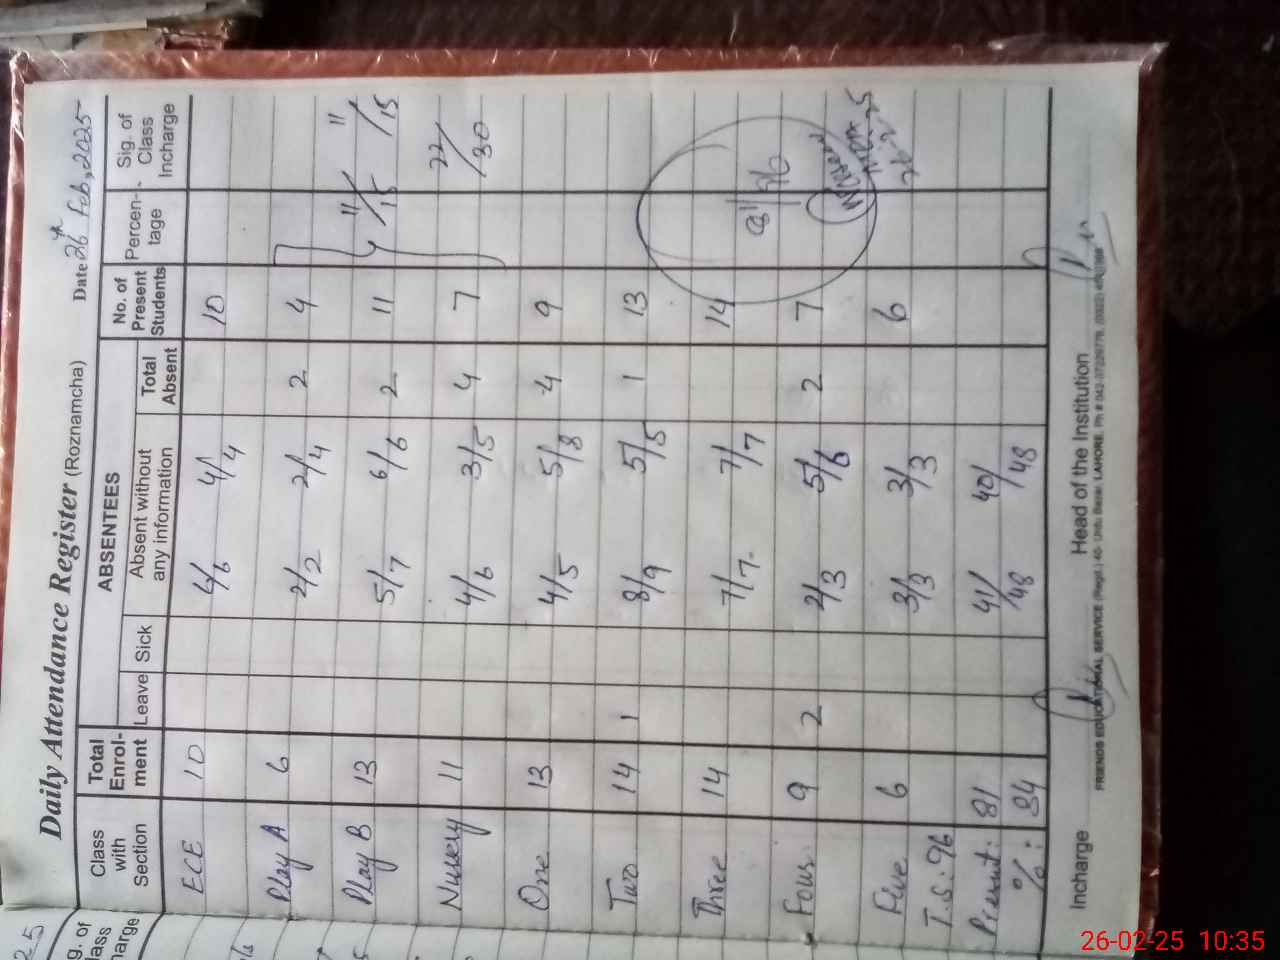 Daily Attendance Register (Roznamcha) Date 26th Feb, 2025
Class with Section Total Enrol-ment ABSENTEES No. of Present Students Percen-tage Sig. of Class Incharge
Leave Sick Absent without any information Total Absent
ECE 10 6/6 4/4 10
Play A 6 2/2 2/4 2 4
Play B 13 5/7 6/6 2 11 11/15 11/15
Nursery 11 4/6 3/5 4 7 22/30
One 13 4/5 5/8 4 9
Two 14 1 8/9 5/5 1 13
Three 14 7/7 7/7 14 81/96
Four 9 2 2/3 5/6 2 7 26-2-25
Five 6 3/3 3/3 6
T.S: 96
Present: 81 41/48 40/48
%: 84
Incharge Head of the Institution
FRIENDS EDUCATIONAL SERVICE (Regd.) 40- Urdu Bazar LAHORE.
25
g. of
lass
harge
26-02-25 10:35